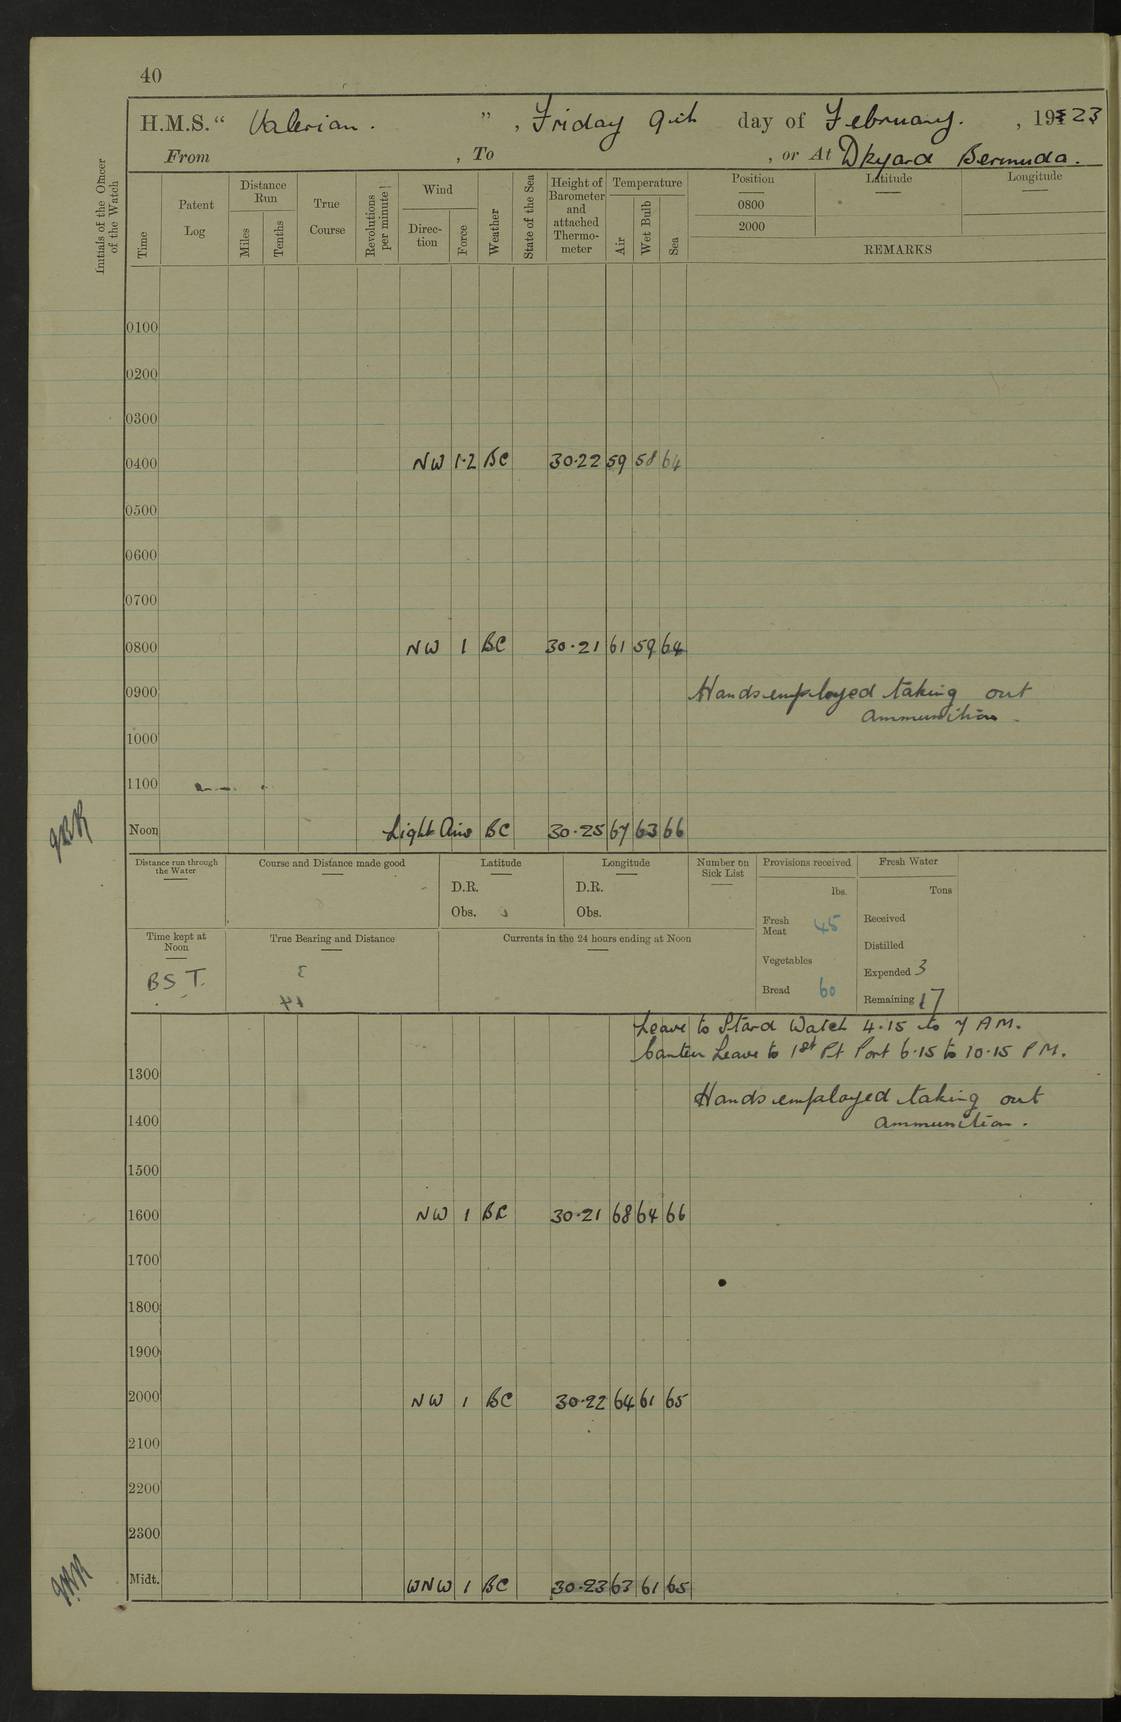 40
H.M.S. “ Valerian. ” , Friday 9th day of February. , 1923
From , To , or At Dkyard Bermuda.
Initials of the Officer of the Watch
Time
Patent Log
Distance Run
Miles
Tenths
True Course
Revolutions per minute
Wind
Direction
Force
Weather
State of the Sea
Height of Barometer and attached Thermometer
Temperature
Air
Wet Bulb
Sea
Position Latitude Longitude
0800
2000
REMARKS
0100
0200
0300
0400 NW 1·2 BC 30·22 59 58 64
0500
0600
0700
0800 NW 1 BC 30·21 61 59 64
0900 Hands employed taking out
ammunition.
1000
1100
Noon Light Airs BC 30·25 67 63 66
Distance run through the Water
Course and Distance made good
Latitude
D.R.
Obs.
Longitude
D.R.
Obs.
Number on Sick List
Provisions received
lbs.
Fresh Meat 45
Vegetables
Bread 60
Fresh Water
Tons
Received
Distilled
Expended 3
Remaining 17
Time kept at Noon
BST.
True Bearing and Distance
Currents in the 24 hours ending at Noon
Leave to Stard Watch 4·15 to 7 AM.
Canteen Leave to 1st Pt Port 6·15 to 10·15 PM.
1300 Hands employed taking out
1400 ammunition.
1500
1600 NW 1 BC 30·21 68 64 66
1700
1800
1900
2000 NW 1 BC 30·22 64 61 65
2100
2200
2300
Midt. WNW 1 BC 30·23 63 61 65